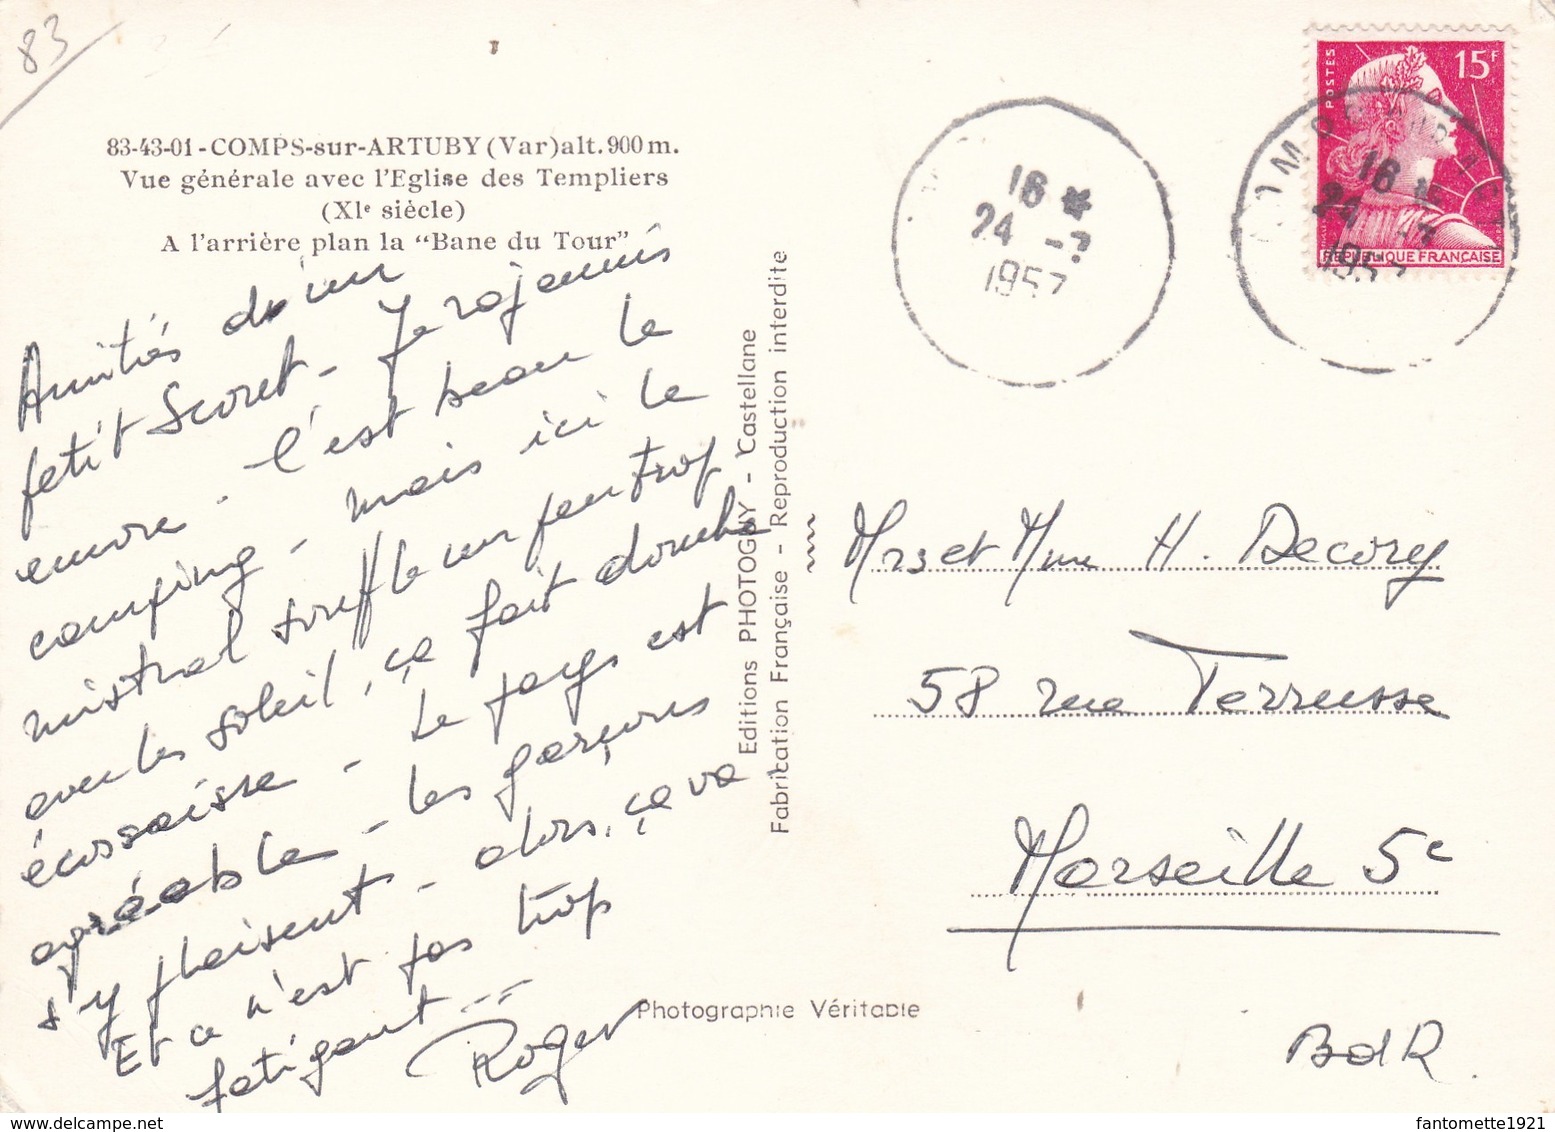 83
83-43-01-COMPS-sur-ARTUBY (Var) alt. 900 m.
Vue générale avec l'Eglise des Templiers
(XIe siècle)
A l'arrière plan la "Bane du Tour"
Amitiés d'un
petit Scoret - Je rajeunis
encore - C'est beau le
camping - mais ici le
mistral souffle un peu trop
avec le soleil, ça fait douche
écossaisse - Le pays est
agréable - Les garçons
s'y plaisent - alors, ça va
Et ce n'est pas trop
fatigant --
Roger
Editions PHOTOGUY - Castellane
Fabrication Française - Reproduction interdite
Photographie Véritable
POSTES
15F
REPUBLIQUE FRANÇAISE
16 *
24 -7
1957
16 *
24 -7
1957
Mrs et Mme H. Decorey
58 rue Terrusse
Marseille 5e
BdR.
fantomette1921